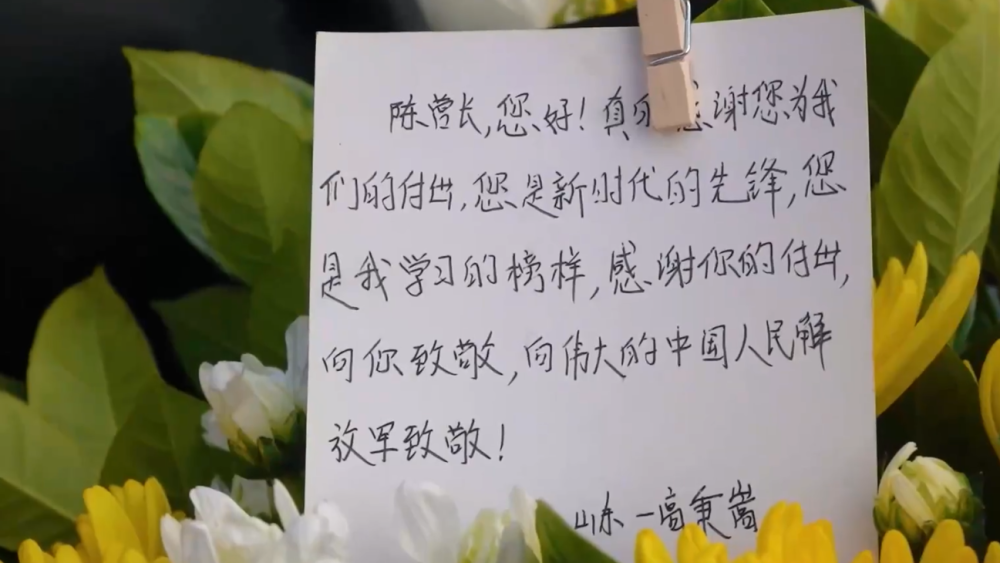 陈营长,您好!真 感谢您为我
们的付出,您是新时代的先锋,您
是我学习的榜样,感谢你的付出,
向你致敬,向伟大的中国人民解
放军致敬!
山东一高秉嵩